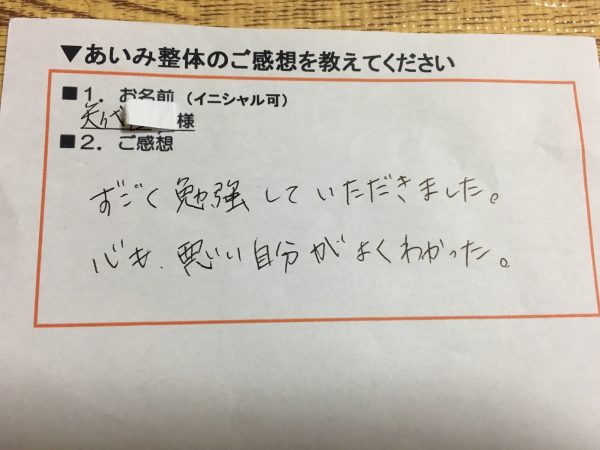 ▼あいみ整体のご感想を教えてください
■1. お名前(イニシャル可)
矢代 様
■2. ご感想
すごく勉強していただきました。
心も、悪い自分がよくわかった。